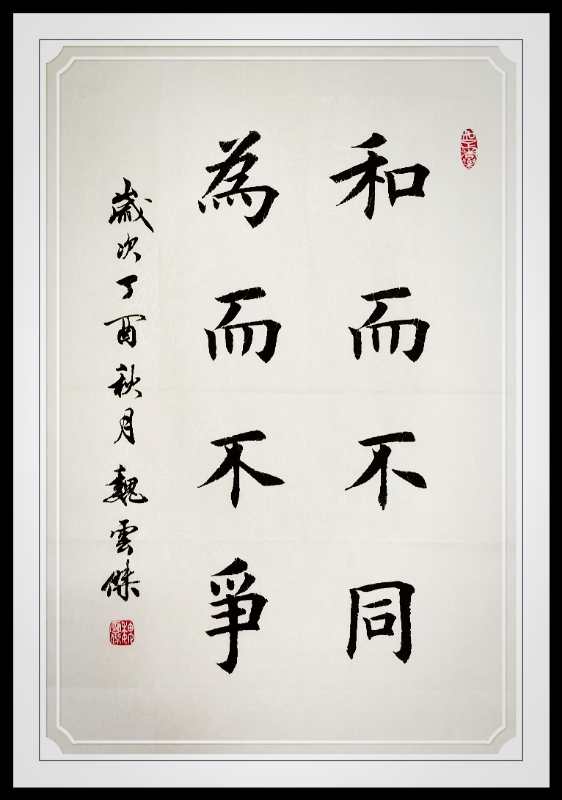 和而不同
為而不爭
歲次丁酉秋月魏雲傑